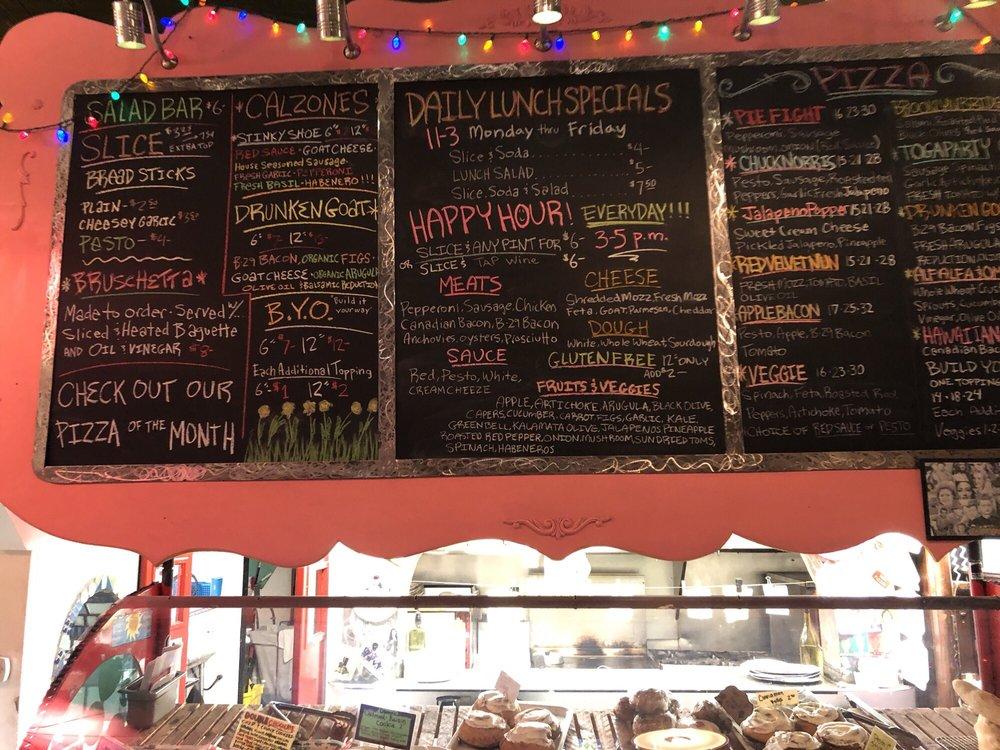 SALAD BAR $6-
SLICE
EXTRA TOP
BREAD STICKS
PLAIN -
CHEESEY GARLIC
PESTO - $4-
*BRUSCHETTA*
Made to order. Served w/
Sliced & Heated Baguette
AND OIL & VINEGAR
CHECK OUT OUR
PIZZA OF THE MONTH
*CALZONES
*STINKY SHOE 6" 12"
RED SAUCE · GOAT CHEESE ·
House Seasoned Sausage ·
FRESH GARLIC · PEPPERONI
FRESH BASIL · HABENERO!!!
DRUNKEN GOAT*
6" 12"
B-29 BACON, ORGANIC FIGS ·
GOAT CHEESE · ORGANIC ARUGULA
OLIVE OIL & BALSAMIC REDUCTION
B.Y.O. "Build it your way"
6" 7- 12" $12-
Each Additional Topping
6" $1 12" $2
DAILY LUNCH SPECIALS
11-3 Monday thru Friday
Slice & Soda........ $4-
LUNCH SALAD........ $5-
Slice, Soda & Salad........ $7.50
HAPPY HOUR! EVERYDAY!!!
SLICE & ANY PINT FOR $6- 3-5 p.m.
OR SLICE & TAP Wine $6-
MEATS
Pepperoni, Sausage, Chicken
Canadian Bacon, B-29 Bacon
Anchovies, oysters, Prosciutto
SAUCE
Red, Pesto, White,
CREAM CHEEZE
CHEESE
Shredded Mozz, Fresh Mozz
Feta, Goat, Parmesan, Cheddar
DOUGH
White, Whole Wheat, Sourdough
GLUTEN FREE 12" ONLY
ADD $2-
FRUITS & VEGGIES
APPLE, ARTICHOKE, ARUGULA, BLACK OLIVE,
CAPERS, CUCUMBER, CARROT, FIGS, GARLIC, KALE,
GREEN BELL, KALAMATA OLIVE, JALAPENOS PINEAPPLE
ROASTED RED PEPPER, ONION, MUSHROOM, SUN DRIED TOMS,
SPINACH, HABENEROS
PIZZA
*PIE FIGHT 16-23-30
Pepperoni, Sausage
Mushroom, Onion (Red Sauce)
*CHUCK NORRIS 15-21-28
Pesto, Sausage, Roasted Red
Peppers, Garlic, Fresh Jalapeno
*Jalapeno Popper 15-21-28
Sweet Cream Cheese
Pickled Jalapeno, Pineapple
*RED VELVET MON 15-21-28
FRESH MOZZ, TOMATO, BASIL
OLIVE OIL
APPLE BACON 17-25-32
Pesto, Apple, B-29 Bacon
Tomato
*VEGGIE 16-23-30
Spinach, Feta, Roasted Red
Peppers, Artichoke, Tomato
CHOICE OF RED SAUCE OR PESTO
TOGA PARTY
DRUNKEN GO
B-29 Bacon, Figs
FRESH ARUGUL
*ALFALFA & JO
Whole Wheat Crus
Sprouts, Cucumbe
Vinegar, Olive O
*HAWAIIAN
Canadian Bac
BUILD YO
ONE TOPPING
14-18-24
Each Add
Veggies 1-2